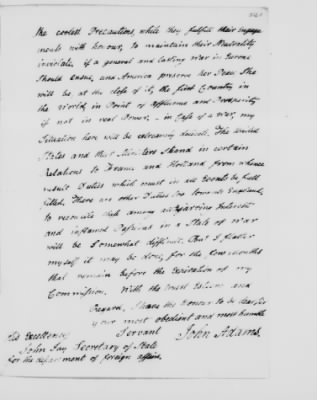 the coolest Precautions, while they fulfill their engage
ments with honour, to maintain their Neutrality
inviolate. if a general and lasting War in Europe
Should ensue, and America preserve her Peace She
will be at the close of it, the first Country in
the World, in Point of Affluence and Prosperity
if not in real Power. - in Case of a War, my
Situation here will be extreamly delicate. The United
States and their Ministers stand in certain
Relations to France and Holland from whence
result Duties which must in all Events be full
filled. There are other Duties too towards England,
to reconcile these among all jarring Interests
and inflamed Passions in a State of War
will be Somewhat difficult. But I flatter
myself it may be done, for the few months
that remain before the Expiration of my
Commission. With the truest Esteem and
Regard, I have the Honour to be dear Sir
your most obedient and most humble
Servant John Adams.
His Excellency
John Jay Secretary of State
for the department of foreign affairs.